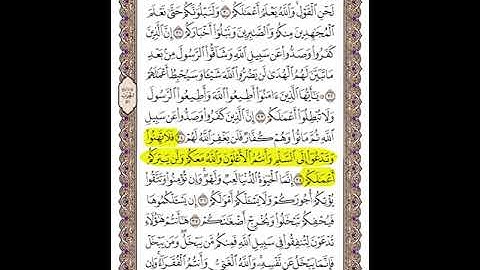 لَحْنِ ٱلْقَوْلِ وَٱللَّهُ يَعْلَمُ أَعْمَٰلَكُمْ ٣٠ وَلَنَبْلُوَنَّكُمْ حَتَّىٰ نَعْلَمَ
ٱلْمُجَٰهِدِينَ مِنكُمْ وَٱلصَّٰبِرِينَ وَنَبْلُوَا۟ أَخْبَارَكُمْ ٣١ إِنَّ ٱلَّذِينَ
كَفَرُوا۟ وَصَدُّوا۟ عَن سَبِيلِ ٱللَّهِ وَشَآقُّوا۟ ٱلرَّسُولَ مِنۢ بَعْدِ
مَا تَبَيَّنَ لَهُمُ ٱلْهُدَىٰ لَن يَضُرُّوا۟ ٱللَّهَ شَيْـًٔا وَسَيُحْبِطُ أَعْمَٰلَهُمْ
٣٢ يَٰٓأَيُّهَا ٱلَّذِينَ ءَامَنُوٓا۟ أَطِيعُوا۟ ٱللَّهَ وَأَطِيعُوا۟ ٱلرَّسُولَ
وَلَا تُبْطِلُوٓا۟ أَعْمَٰلَكُمْ ٣٣ إِنَّ ٱلَّذِينَ كَفَرُوا۟ وَصَدُّوا۟ عَن سَبِيلِ
ٱللَّهِ ثُمَّ مَاتُوا۟ وَهُمْ كُفَّارٌ فَلَن يَغْفِرَ ٱللَّهُ لَهُمْ ٣٤ فَلَا تَهِنُوا۟
وَتَدْعُوٓا۟ إِلَى ٱلسَّلْمِ وَأَنتُمُ ٱلْأَعْلَوْنَ وَٱللَّهُ مَعَكُمْ وَلَن يَتِرَكُمْ
أَعْمَٰلَكُمْ ٣٥ إِنَّمَا ٱلْحَيَوٰةُ ٱلدُّنْيَا لَعِبٌ وَلَهْوٌ وَإِن تُؤْمِنُوا۟ وَتَتَّقُوا۟
يُؤْتِكُمْ أُجُورَكُمْ وَلَا يَسْـَٔلْكُمْ أَمْوَٰلَكُمْ ٣٦ إِن يَسْـَٔلْكُمُوهَا
فَيُحْفِكُمْ تَبْخَلُوا۟ وَيُخْرِجْ أَضْغَٰنَكُمْ ٣٧ هَٰٓأَنتُمْ هَٰٓؤُلَآءِ
تُدْعَوْنَ لِتُنفِقُوا۟ فِى سَبِيلِ ٱللَّهِ فَمِنكُم مَّن يَبْخَلُ وَمَن يَبْخَلْ
فَإِنَّمَا يَبْخَلُ عَن نَّفْسِهِۦ وَٱللَّهُ ٱلْغَنِىُّ وَأَنتُمُ ٱلْفُقَرَآءُ وَإِن